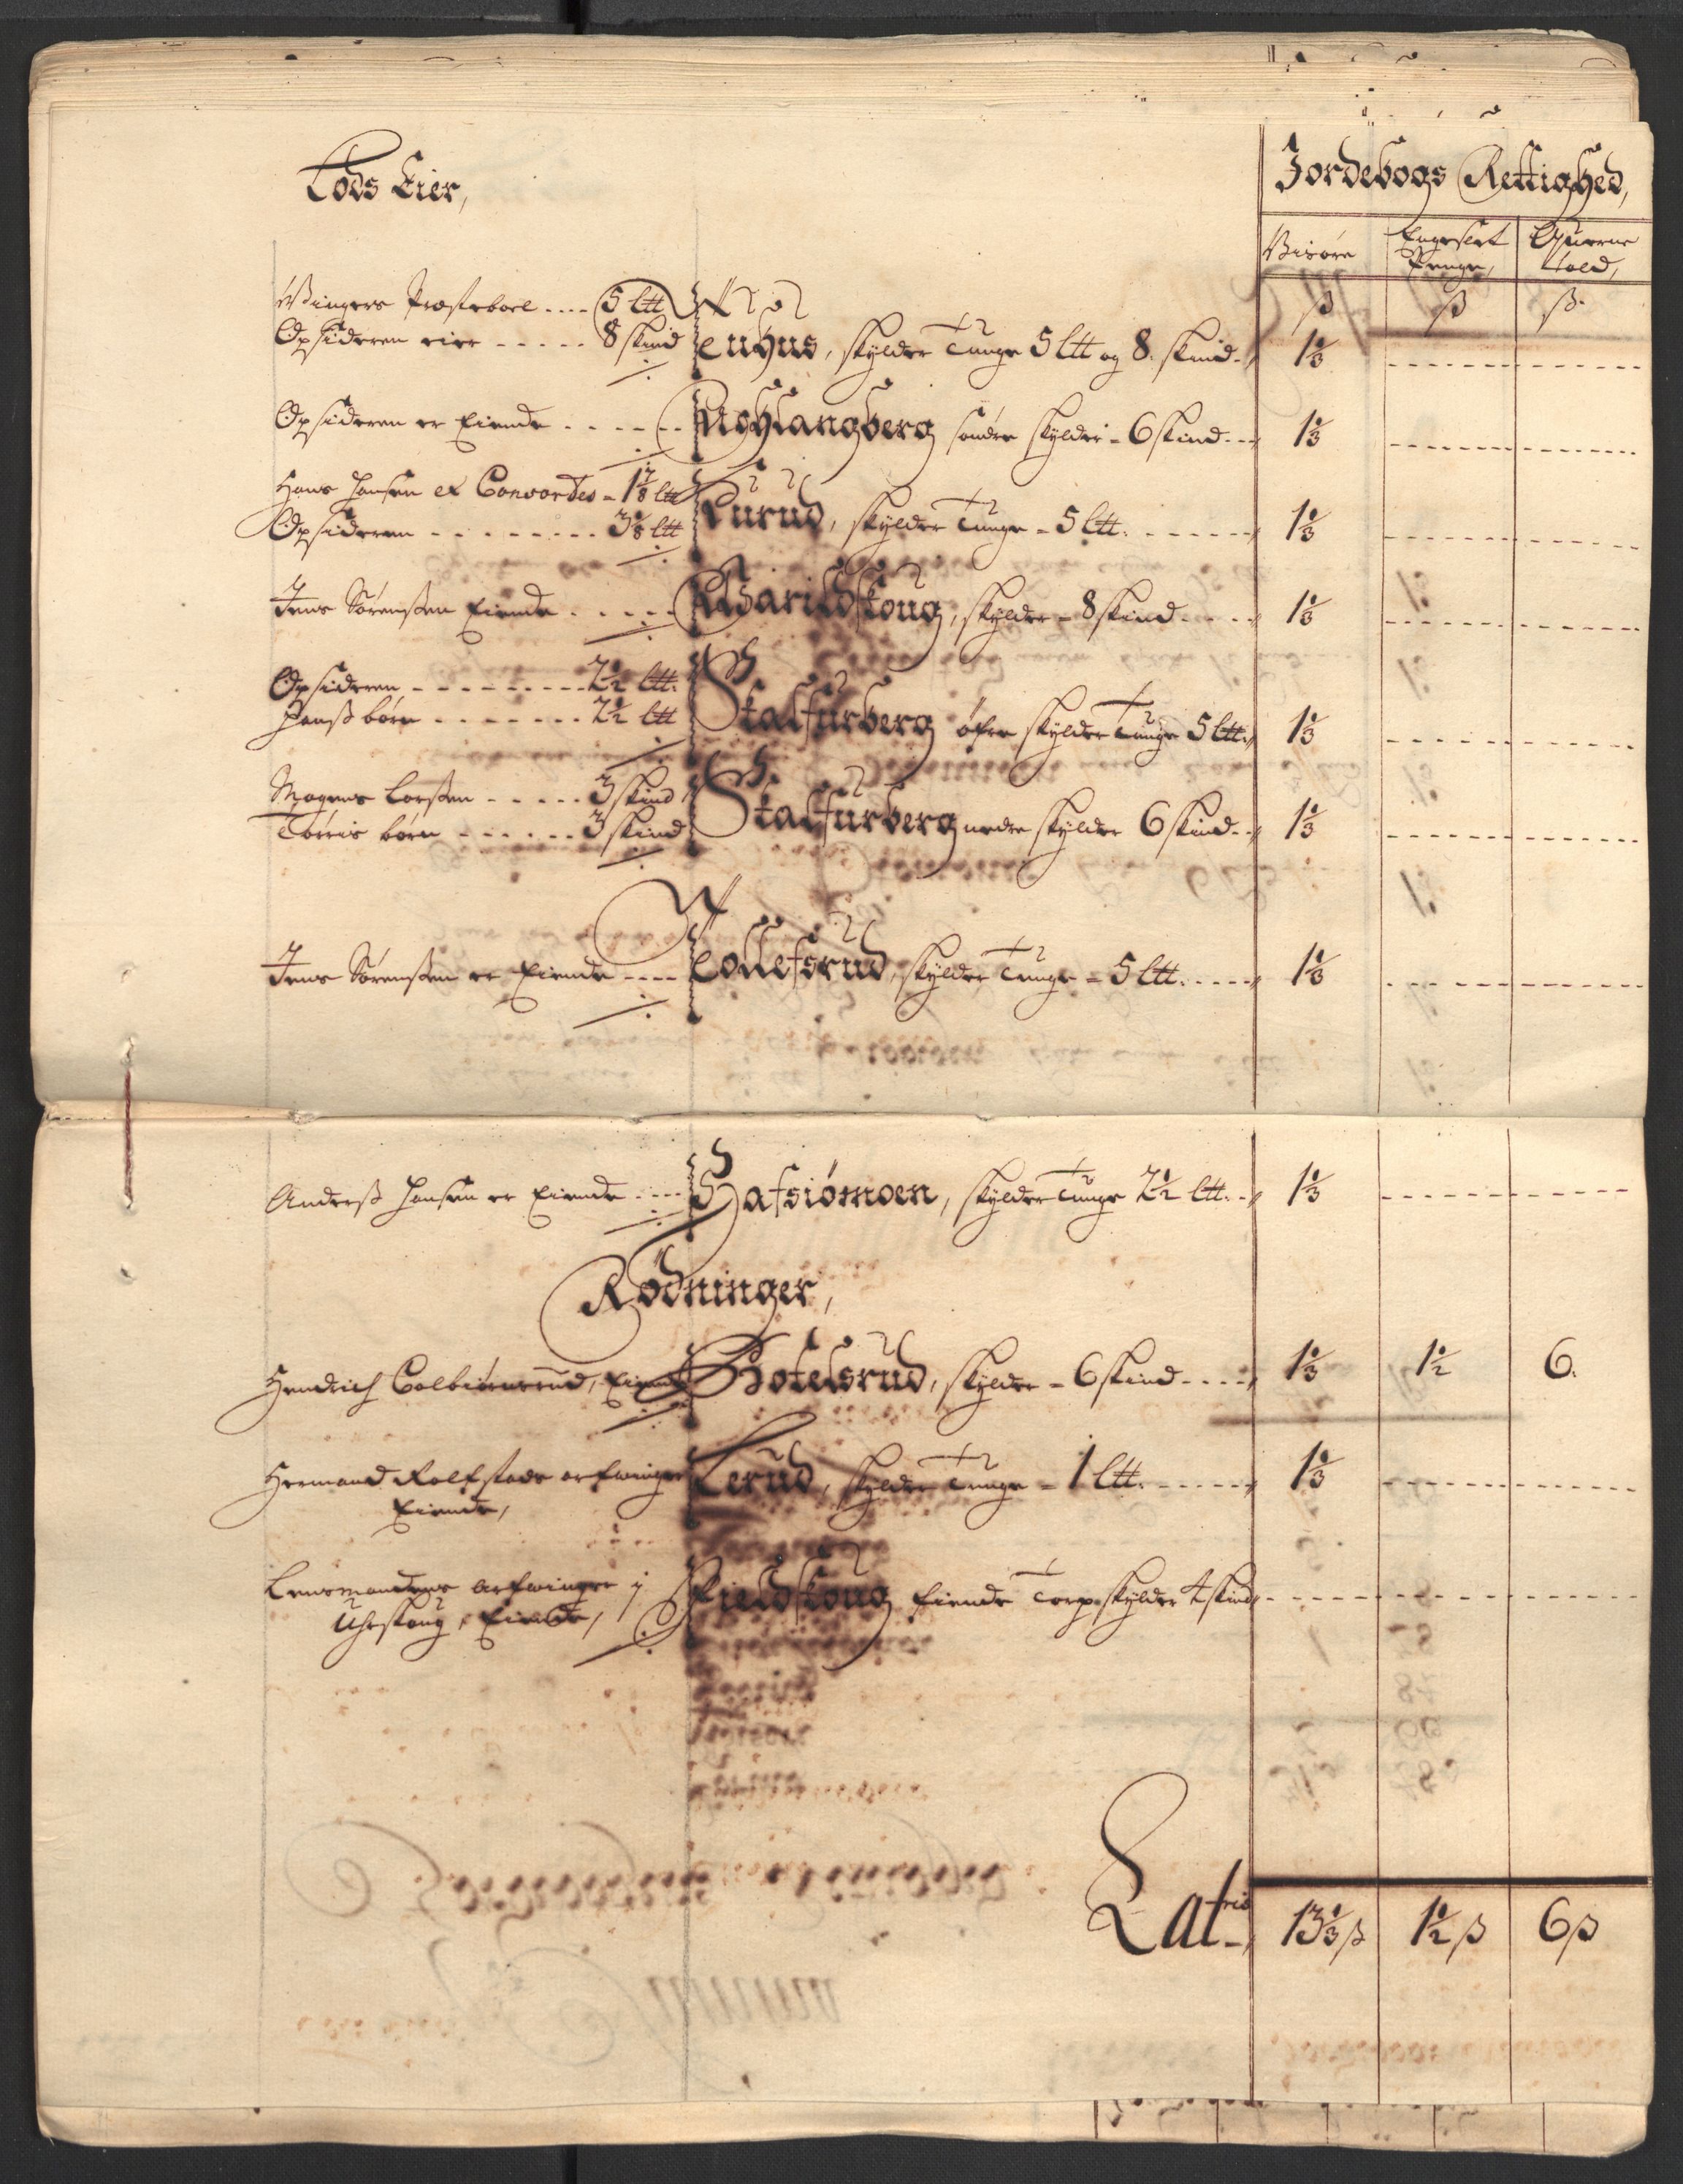 Lods Eier,
Jordebogs Rettighed,
Visøre
Engeslet Penge,
Querne Told,
ß ß ß
Wingers Præsteboel .... 5 Ltt
Opsideren eier ..... 8 skind
Neuhus, skylder Tunge 5 Ltt og 8. skind. 1⅓
Opsideren er Eiende ...... Aschlangberg søndre skylder - 6 skind.. 1⅓
Hans Hansen et Consortes - 1⅞ Ltt
Opsideren ......... 3⅛ Ltt
Lurud, skylder Tunge - 5 Ltt. ...... 1⅓
Jens Sørensen Eiende ..... Warildskoug, skylder - 8 skind .... 1⅓
Opsideren ......... 2½ Ltt.
Hanß børn ....... 2½ Ltt
Skalfurberg øfre skylder Tunge 5 Ltt. 1⅓
Mogens Larsen ..... 3 skind
Torris børn ...... 3 skind
Skalfurberg nedre skylder 6 skind.. 1⅓
Jens Sørensen er Eiende .... Tollefsrud, skylder Tunge - 5 Ltt. .... 1⅓
Anderß Hansen er Eiende .... Hafsiømoen, skylder Tunge 2½ Ltt. 1⅓
Rødninger,
Hendrich Colbiørnsrud, Eiende Botelsrud, skylder - 6 skind .... 1⅓ 1½ 6.
Hermand Rolfstads arfwinger Eiende,
Lerud, skylder Tunge - 1 Ltt. ..... 1⅓
Lensmandens arfwinger i Uhrskoug, Eiende,
Fieldskoug Eiende Torp skylder 1 skind
Latris 13⅓ ß 1½ ß 6 ß